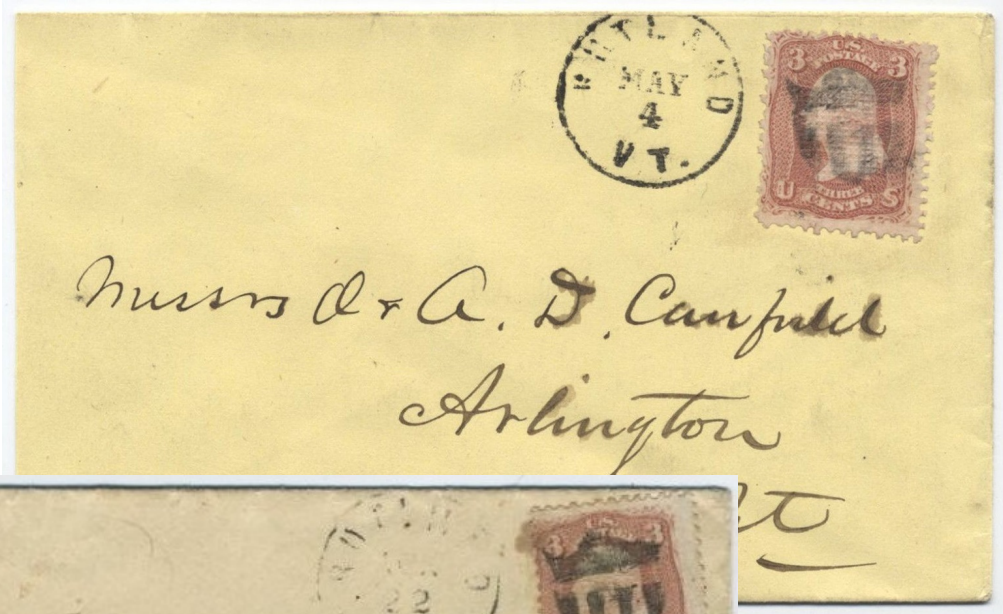 RUTLAND
MAY
4
VT.
3 U.S. POSTAGE 3
U THREE CENTS S
Messrs O & A. D. Canfield
Arlington
Vt
RUTLAND
22
3 U.S. 3